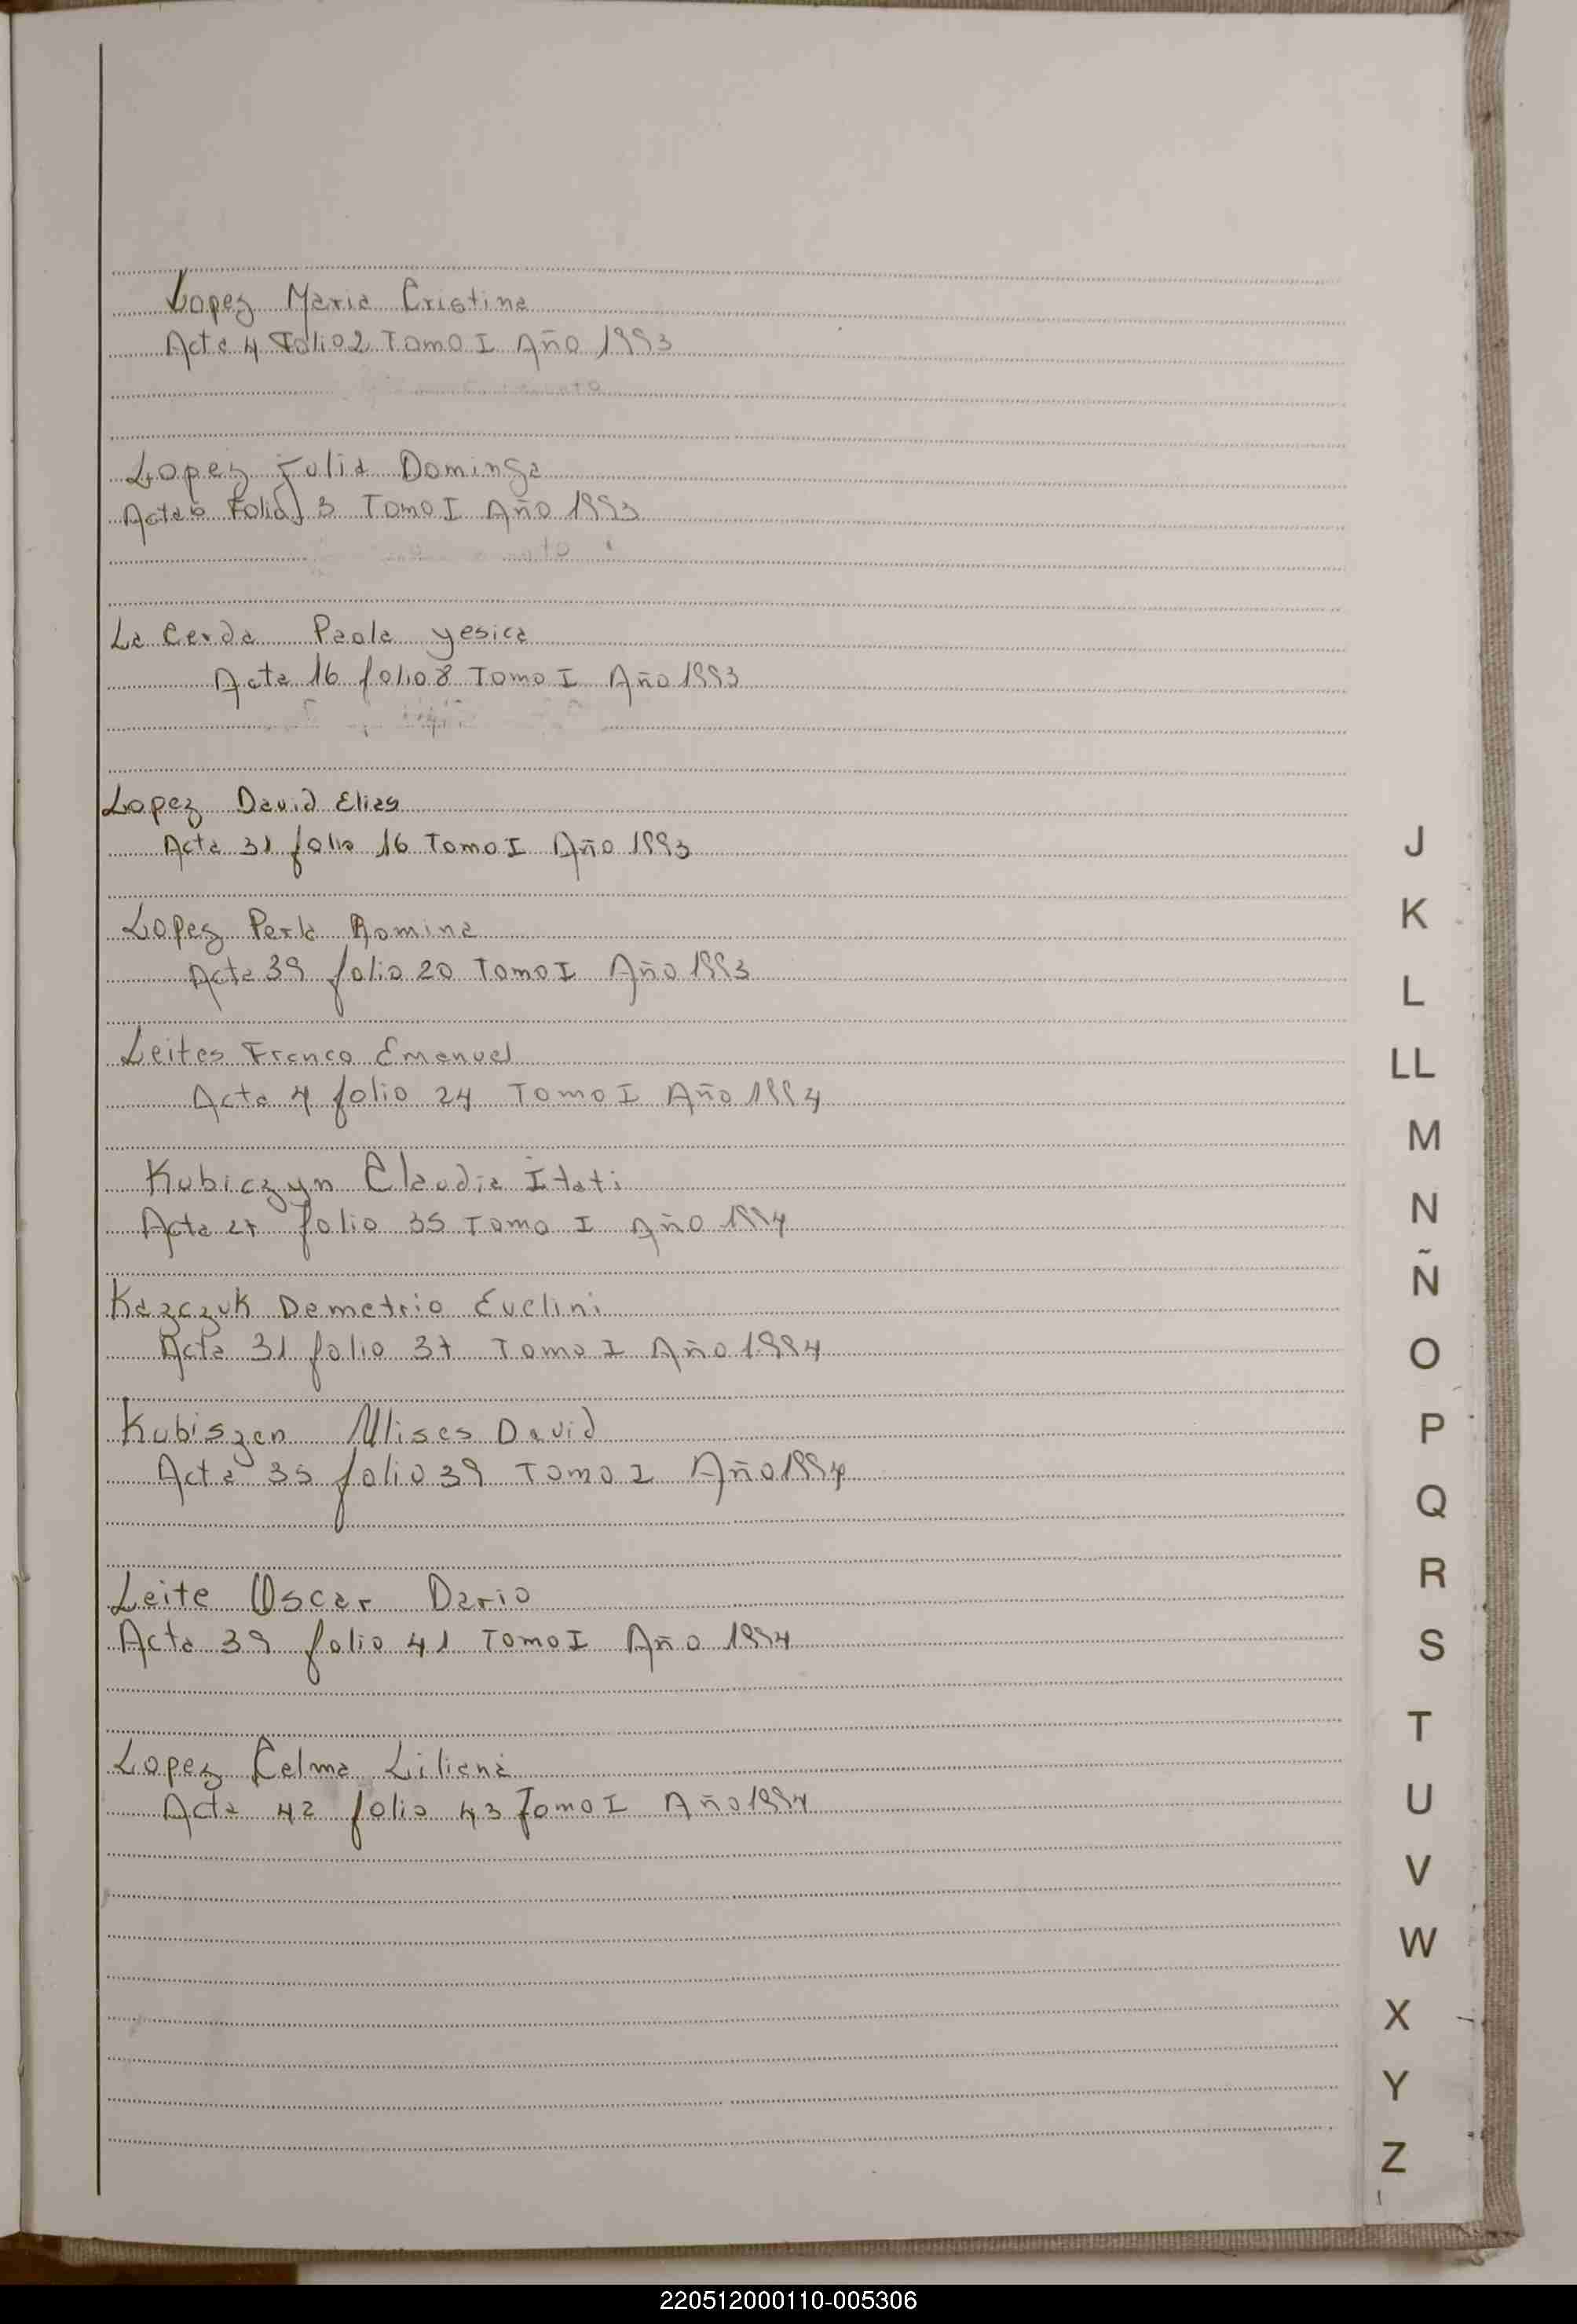 Lopez Maria Cristina
Acta 4 Folio 2 Tomo I Año 1993
Lopez Julia Dominga
Acta 6 Folio 3 Tomo I Año 1993
La Cerda Paola Yesica
Acta 16 folio 8 Tomo I Año 1993
Lopez David Elias
Acta 31 folio 16 Tomo I Año 1993
Lopez Perla Romina
Acta 39 folio 20 Tomo I Año 1993
Leites Franco Emanuel
Acta 4 folio 24 Tomo I Año 1994
Kubiczyn Claudia Itati
Acta 27 folio 35 Tomo I Año 1994
Kazczuk Demetrio Evelini
Acta 31 folio 37 Tomo I Año 1994
Kubiszen Ulises David
Acta 35 folio 39 Tomo I Año 1994
Leite Oscar Dario
Acta 39 folio 41 Tomo I Año 1994
Lopez Celma Liliana
Acta 42 folio 43 Tomo I Año 1994
J
K
L
LL
M
N
Ñ
O
P
Q
R
S
T
U
V
W
X
Y
Z
220512000110-005306